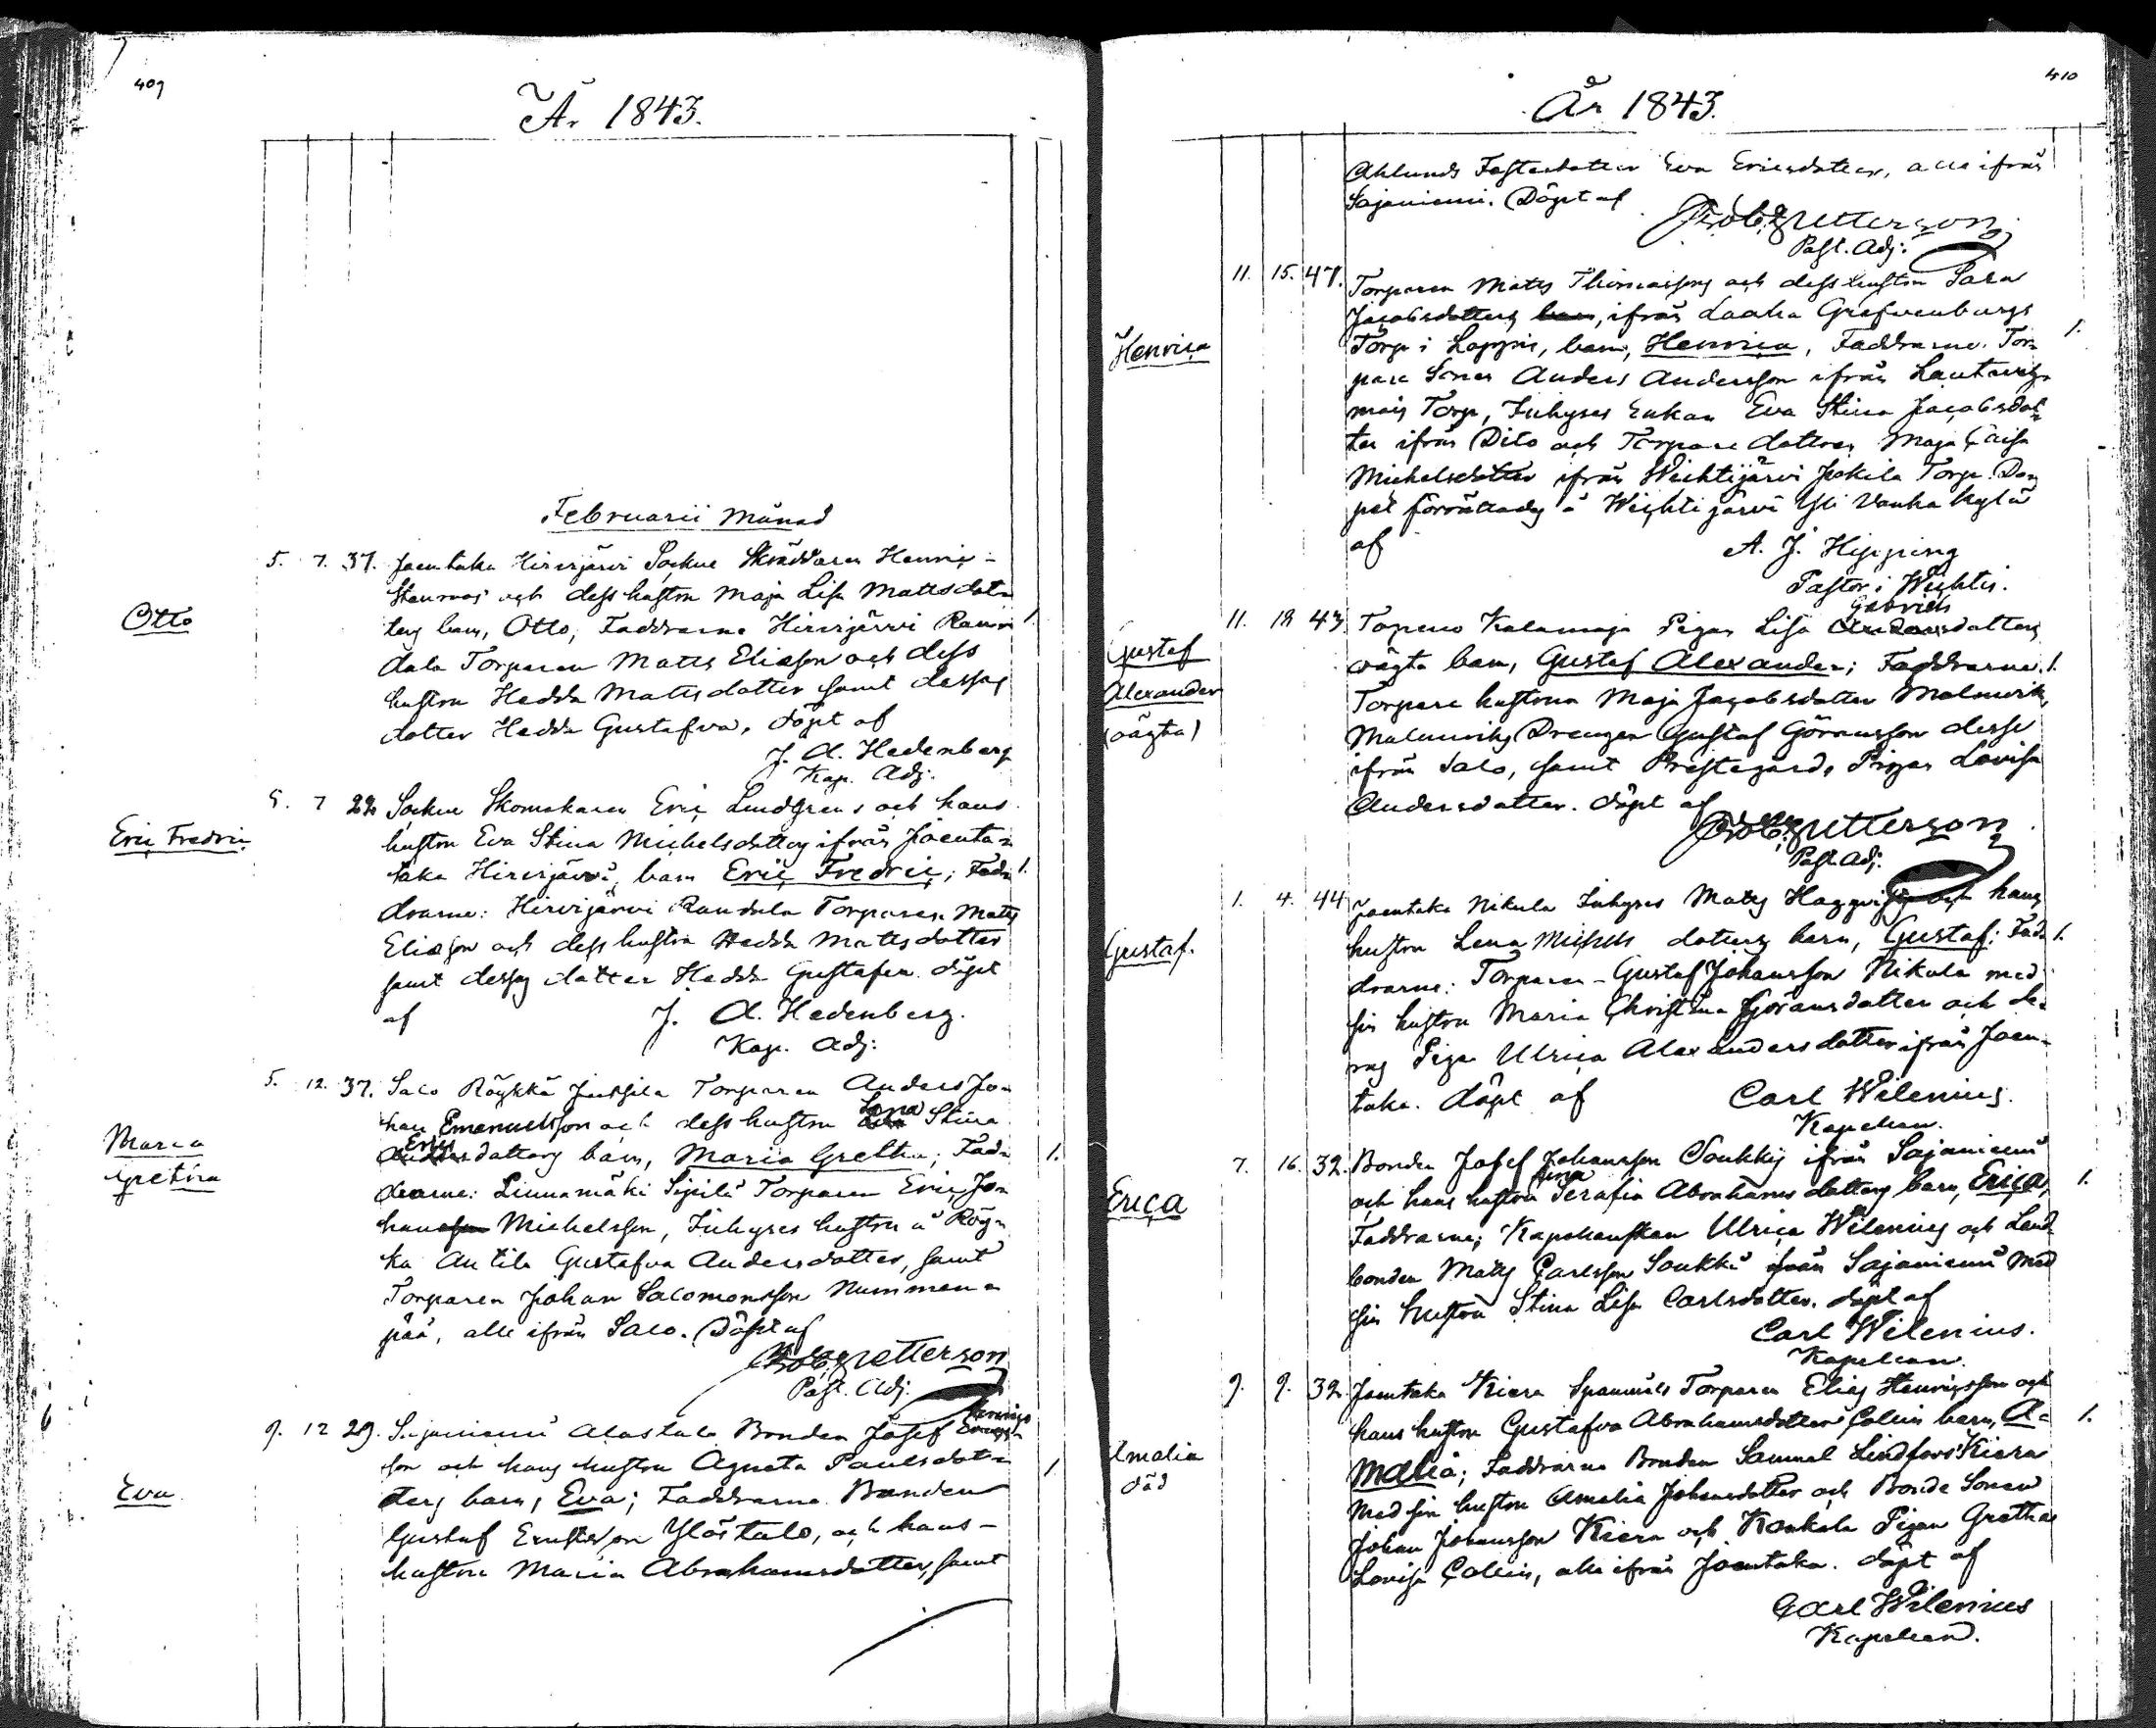 409
År 1843.
Februarii Månad
5. 7. 37. Joentaka Hirvijärvi Sockne Skräddaren Henric
Stenroos och dess hustru Maja Lisa Mattsdot-
Otto
ters barn, Otto, Faddrarne Hirvijärvi Ran- 1.
dala Torparen Matts Eliasson och dess
hustru Hedda Mattsdotter samt dessas
dotter Hedda Gustafva, döpt af
J. A. Hedenberg
Kap. Adj.
5. 7 22 Sockne Skomakaren Eric Lindgrens och hans
Eric Fredric
hustru Eva Stina Michelsdotters ifrån Joenta-
taka Hirvijärvi, barn Eric Fredric; Fad- 1.
drarne: Hirvijärvi Randala Torparen Matts
Eliasson och dess hustru Hedda Mattsdotter
samt dessas dotter Hedda Gustafva. döpt
af J. A. Hedenberg.
Kap. Adj:
5. 12. 37. Salo Röykkä Jussila Torparen Anders Jo-
han Emanuelsson och dess hustru Lena Stina
Maria
Gretha
Ericsdotters barn, Maria Gretha; Fad- 1.
drarne: Linnamäki Sipilä Torparen Eric Jo-
han Michelsson, Inhyses hustru å Röy-
kä Antila Gustafva Andersdotter, samt
Torparen Johan Salomonsson Nummen-
pää, alle ifrån Salo. Döpt af
Petterson
Past. Adj.
9. 12 29. Sajaniemi Alastalo Bonden Josef Henrics-
son och hans hustru Agneta Paulsdot- 1.
Eva
ters barn, Eva; Faddrarne Bonden
Gustaf Ylöstalo, och hans
hustru Maria Abrahamsdotter, samt
410
År 1843.
Ahlunds Fosterdotter Eva Ericsdotter, alla ifrån
Sajaniemi. Döpt af
Petterson
Past. Adj:
11. 15. 47. Torparen Matts Thomassons och dess hustru Sara
Jacobsdotters, ifrån Grefvenburgs
Henrica
Torp i Loppis, barn, Henrica, Faddrarne. Tor- 1.
pare Sonen Anders Andersson ifrån
Torp, Inhyses Enkan Eva Stina Jacobsdot-
ter ifrån Dito och Torpare dottren Maja Caisa
Michelsdotter ifrån Wichtijärvi Jokila Torp. Do-
pet förrättades å Wichtijärvi Yli Vanhakylä
af A. J. Hipping
Pastor i Wichtis.
Gabriels
11. 19 43 Topeno Kalamaja Pigan Lisa dotters
Gustaf
Alexander
(oägta)
oägta barn, Gustaf Alexander; Faddrarne. 1.
Torpare hustrun Maja Jacobsdotter Malmvik,
Malmviks Drengen Gustaf Göransson desse
ifrån Salo, samt Prestegårds Pigan Lovisa
Andersdotter. döpt af
Petterson
Past Adj.
1. 4. 44 Joentaka Nikula Inhyses Matts och hans
Gustaf.
hustru Lena Michels dotters barn, Gustaf; Fad- 1.
drarne: Torparen Gustaf Johansson Nikula med
sin hustru Maria Christina Göransdotter och de-
ras Piga Ulrica Alexandersdotter ifrån Joen-
taka. döpt af Carl Wilenius.
Kapellan.
7. 16. 32. Bonden Josef Johansson Soukkis ifrån Sajaniemi
Erica
och hans hustru Serafia Abrahams dotters barn, Erica, 1.
Faddrarne; Ulrica Wilenius och Land-
bonden Matts Carlsson Soukki från Sajaniemi med
sin hustru Stina Lisa Carlsdotter. döpt af
Carl Wilenius.
Kapellan.
9. 9. 32. Joentaka Kiera Torparen Elias Henricsson och
hans hustru Gustafva Abrahamsdotter Collin barn, A- 1.
Amalia
död
malia; Faddrarne Bonden Samuel Lindfors Kiera
med sin hustru Amalia Johansdotter och Bonde Sonen
Johan Johansson Kiera och Koukala Pigan Gretha
Lovisa Collin, alle ifrån Joentaka. döpt af
Carl Wilenius
Kapellan.